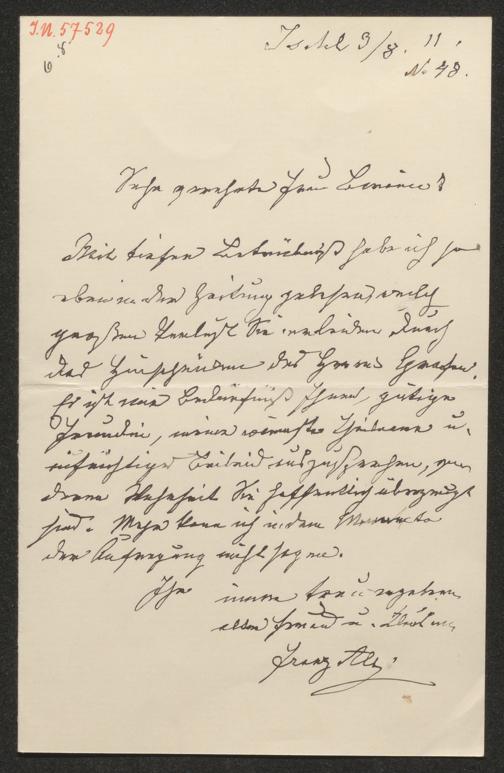 I.N. 57529
Ischl 3/8. 11.
No 48.
Sehr geehrte Frau Baronin!
Mit tiefer Betrübniß habe ich so
eben in der Zeitung gelesen, welch
großen Verlust Sie erleiden durch
das Hinscheiden des Herrn Grafen.
Es ist mir Bedürfniß Ihnen, gütige
Freundin, meine wärmste Theilnahme u.
aufrichtiges Beileid auszusprechen, von
deren Wahrheit Sie hoffentlich überzeugt
sind. Mehr kann ich in dem Momente
der Aufregung nicht sagen.
Ihr immer treu ergebener
alter Freund u.
Franz